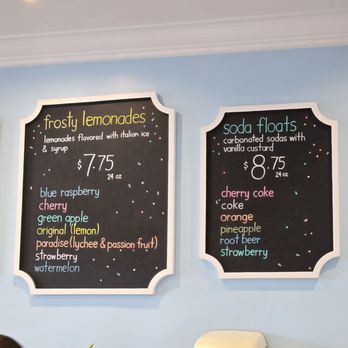 frosty lemonades
lemonades flavored with italian ice
& syrup
$7.75
24 oz
blue raspberry
cherry
green apple
original (lemon)
paradise (lychee & passion fruit)
strawberry
watermelon
soda floats
carbonated sodas with
vanilla custard
$8.75
24 oz
cherry coke
coke
orange
pineapple
root beer
strawberry